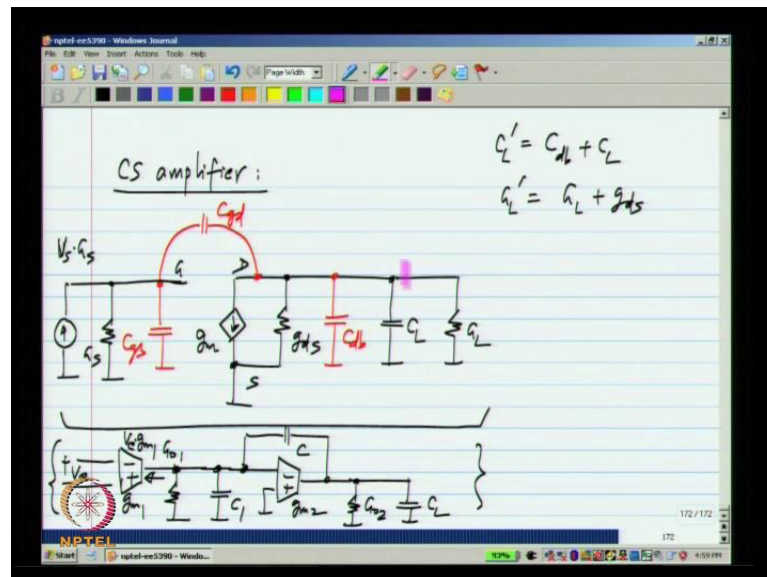 nptel-ee5390 - Windows Journal
File Edit View Insert Actions Tools Help
Page Width
B I
CS amplifier :
C_L' = C_db + C_L
G_L' = G_L + g_ds
V_s·G_s
C_gd
G
D
G_s
C_gs
g_m
g_ds
C_db
C_L
G_L
S
V_e·g_m1
G_o1
+
-
+
V_e
g_m1
C_1
C
-
+
g_m2
G_o2
C_L
NPTEL
172 / 172
172
Start
nptel-ee5390 - Windo...
93%
4:59 PM